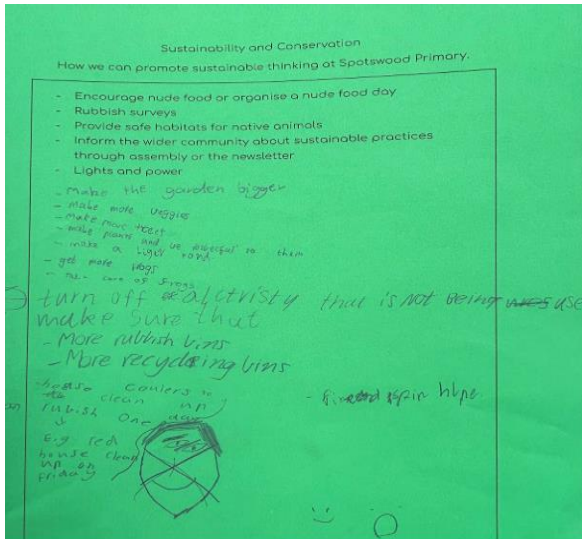 Sustainability and Conservation
How we can promote sustainable thinking at Spotswood Primary.
- Encourage nude food or organise a nude food day
- Rubbish surveys
- Provide safe habitats for native animals
- Inform the wider community about sustainable practices
through assembly or the newsletter
- Lights and power
- make the garden bigger
- make more veggies
- make more
- make plants and be to them
- make a
- get more frogs
- care of frogs
turn off that is NOT Being use
make sure that
- More rubbish bins
- More recycleing bins
house to
clean up
rubish One day
E.g red
house clean
up on
Friday